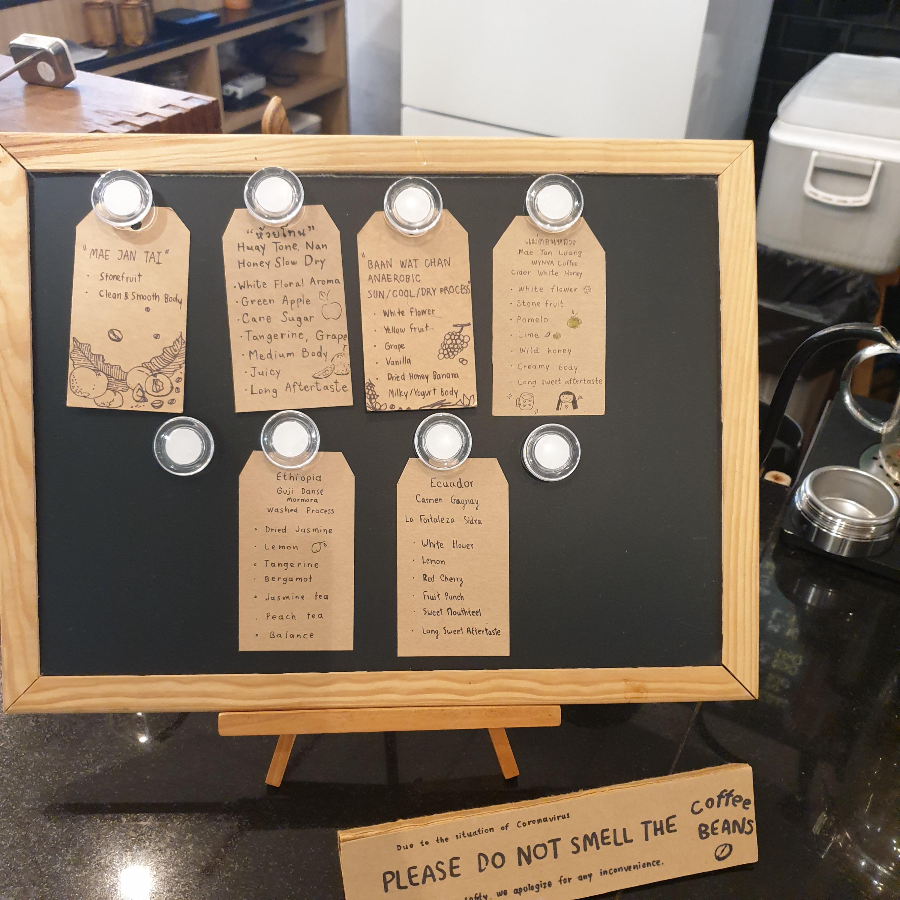 "MAE JAN TAI"
• Stonefruit
• Clean & Smooth Body
"ห้วยโทน"
Huay Tone, Nan
Honey Slow Dry
• White Floral Aroma
• Green Apple
• Cane Sugar
• Tangerine, Grape
• Medium Body
• Juicy
• Long Aftertaste
"BAAN WAT CHAN
ANAEROBIC
SUN/COOL/DRY PROCESS
• White Flower
• Yellow Fruit
• Grape
• Vanilla
• Dried Honey Banana
• Milky/Yogurt Body
Mae Ton Luang
WYNYA Coffee
Cider White Honey
• White flower
• Stone fruit
• Pomelo
• Lime
• Wild honey
• Creamy body
• Long sweet aftertaste
Ethiopia
Guji Danse
Mormora
Washed Process
• Dried Jasmine
• Lemon
• Tangerine
• Bergamot
• Jasmine tea
• Peach tea
• Balance
Ecuador
Carmen Gagnay
La Fortaleza Sidra
• White flower
• Lemon
• Red Cherry
• Fruit Punch
• Sweet Mouthfeel
• Long Sweet Aftertaste
Due to the situation of Coronavirus
PLEASE DO NOT SMELL THE Coffee
BEANS
we apologize for any inconvenience.